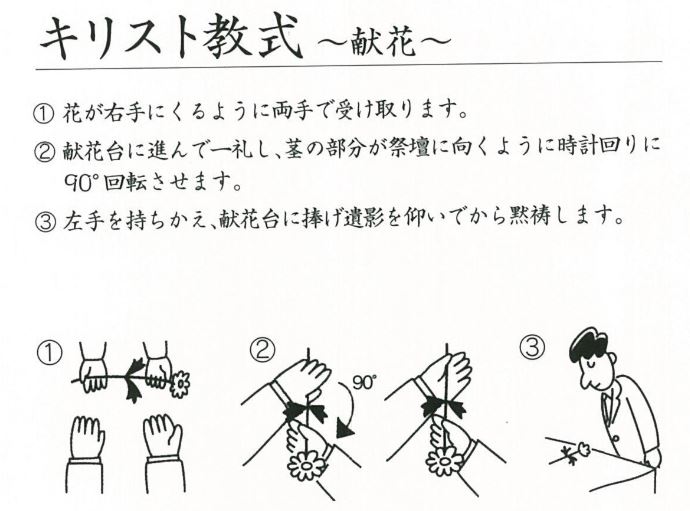 キリスト教式 ～献花～
① 花が右手にくるように両手で受け取ります。
② 献花台に進んで一礼し、茎の部分が祭壇に向くように時計回りに
90°回転させます。
③ 左手を持ちかえ、献花台に捧げ遺影を仰いでから黙祷します。
① ② 90° ③